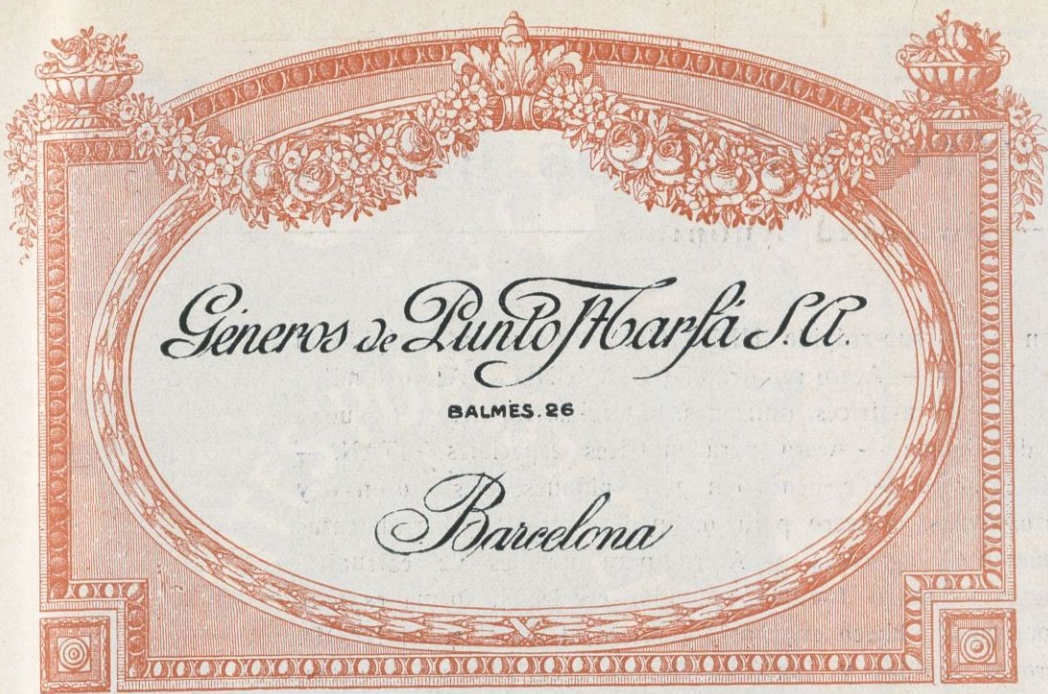 Géneros de Punto Marfá S.A.
BALMES. 26
Barcelona